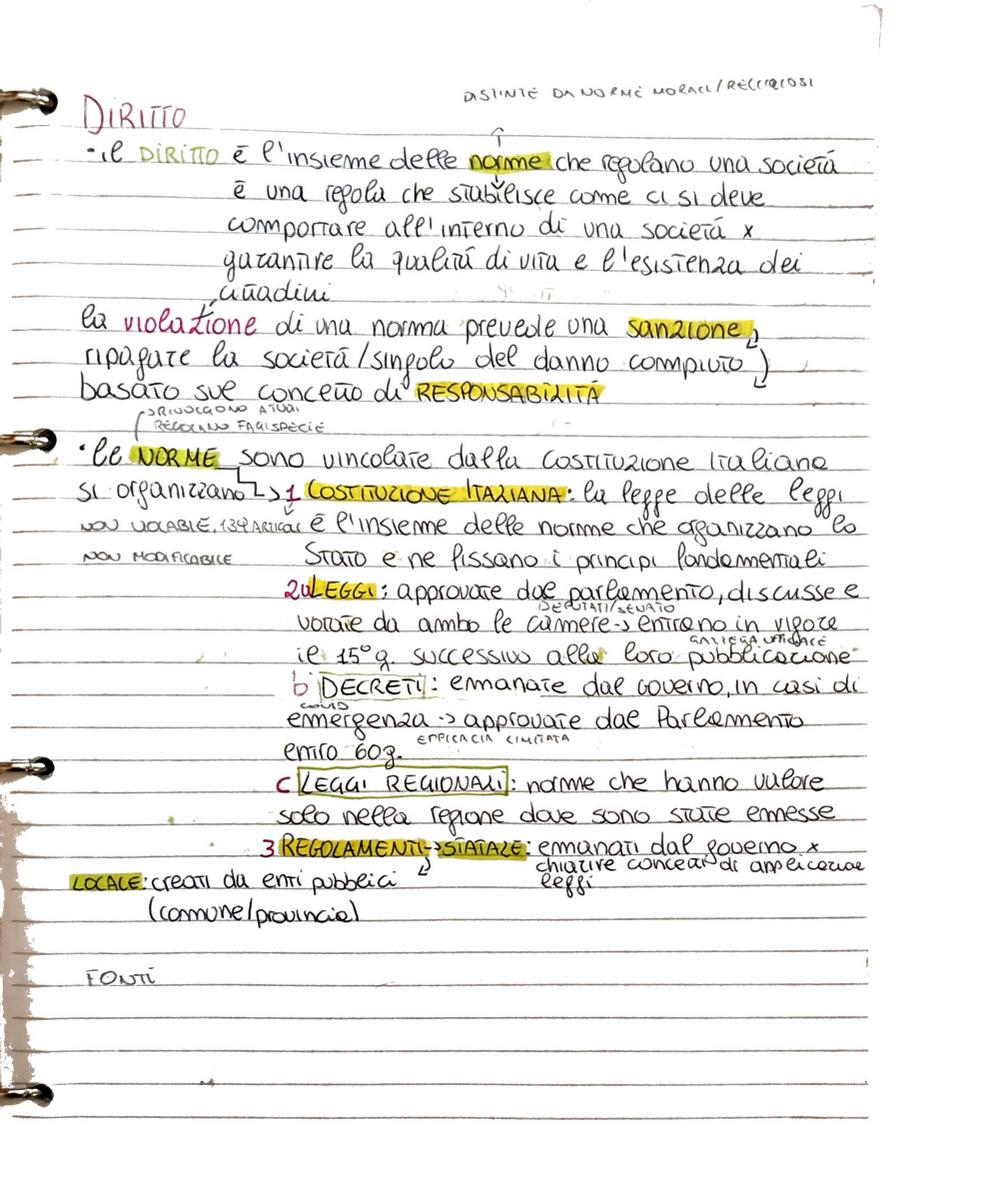 DISTINTE DA NORME MORALI/RELIGIOSI
DIRITTO
•il DIRITTO è l'insieme delle norme che regolano una società
è una regola che stabilisce come ci si deve
comportare all'interno di una società x
garantire la qualità di vita e l'esistenza dei
cittadini
la violazione di una norma prevede una sanzione
ripagare la società/singolo del danno compiuto
basato sul concetto di RESPONSABILITÀ
RIVOLGONO A TUTTI
REGOLANO FATTISPECIE
•le NORME sono vincolate dalla Costituzione Italiana
si organizzano -> 1 COSTITUZIONE ITALIANA: la legge delle leggi
NON VOLABILE, 139 ARTICOLI è l'insieme delle norme che oganizzano lo
NON MODIFICABILE Stato e ne fissano i principi fondamentali
2a LEGGI: approvate dal parlamento, discusse e
DEPUTATI/SENATO
votate da ambo le camere -> entrano in vigore
GAZZETTA UFFICIALE
il 15° g. successivo alla loro pubblicazione
b DECRETI: emanate dal governo, in casi di
COVID
emergenza -> approvate dal Parlamento
EFFICACIA LIMITATA
entro 60g.
c LEGGI REGIONALI: norme che hanno valore
solo nella regione dove sono state emesse
3 REGOLAMENTI -> STATALE: emanati dal governo x
chiarire concetti di applicazione
leggi
LOCALE: creati da enti pubblici
(comune/provincia)
FONTI